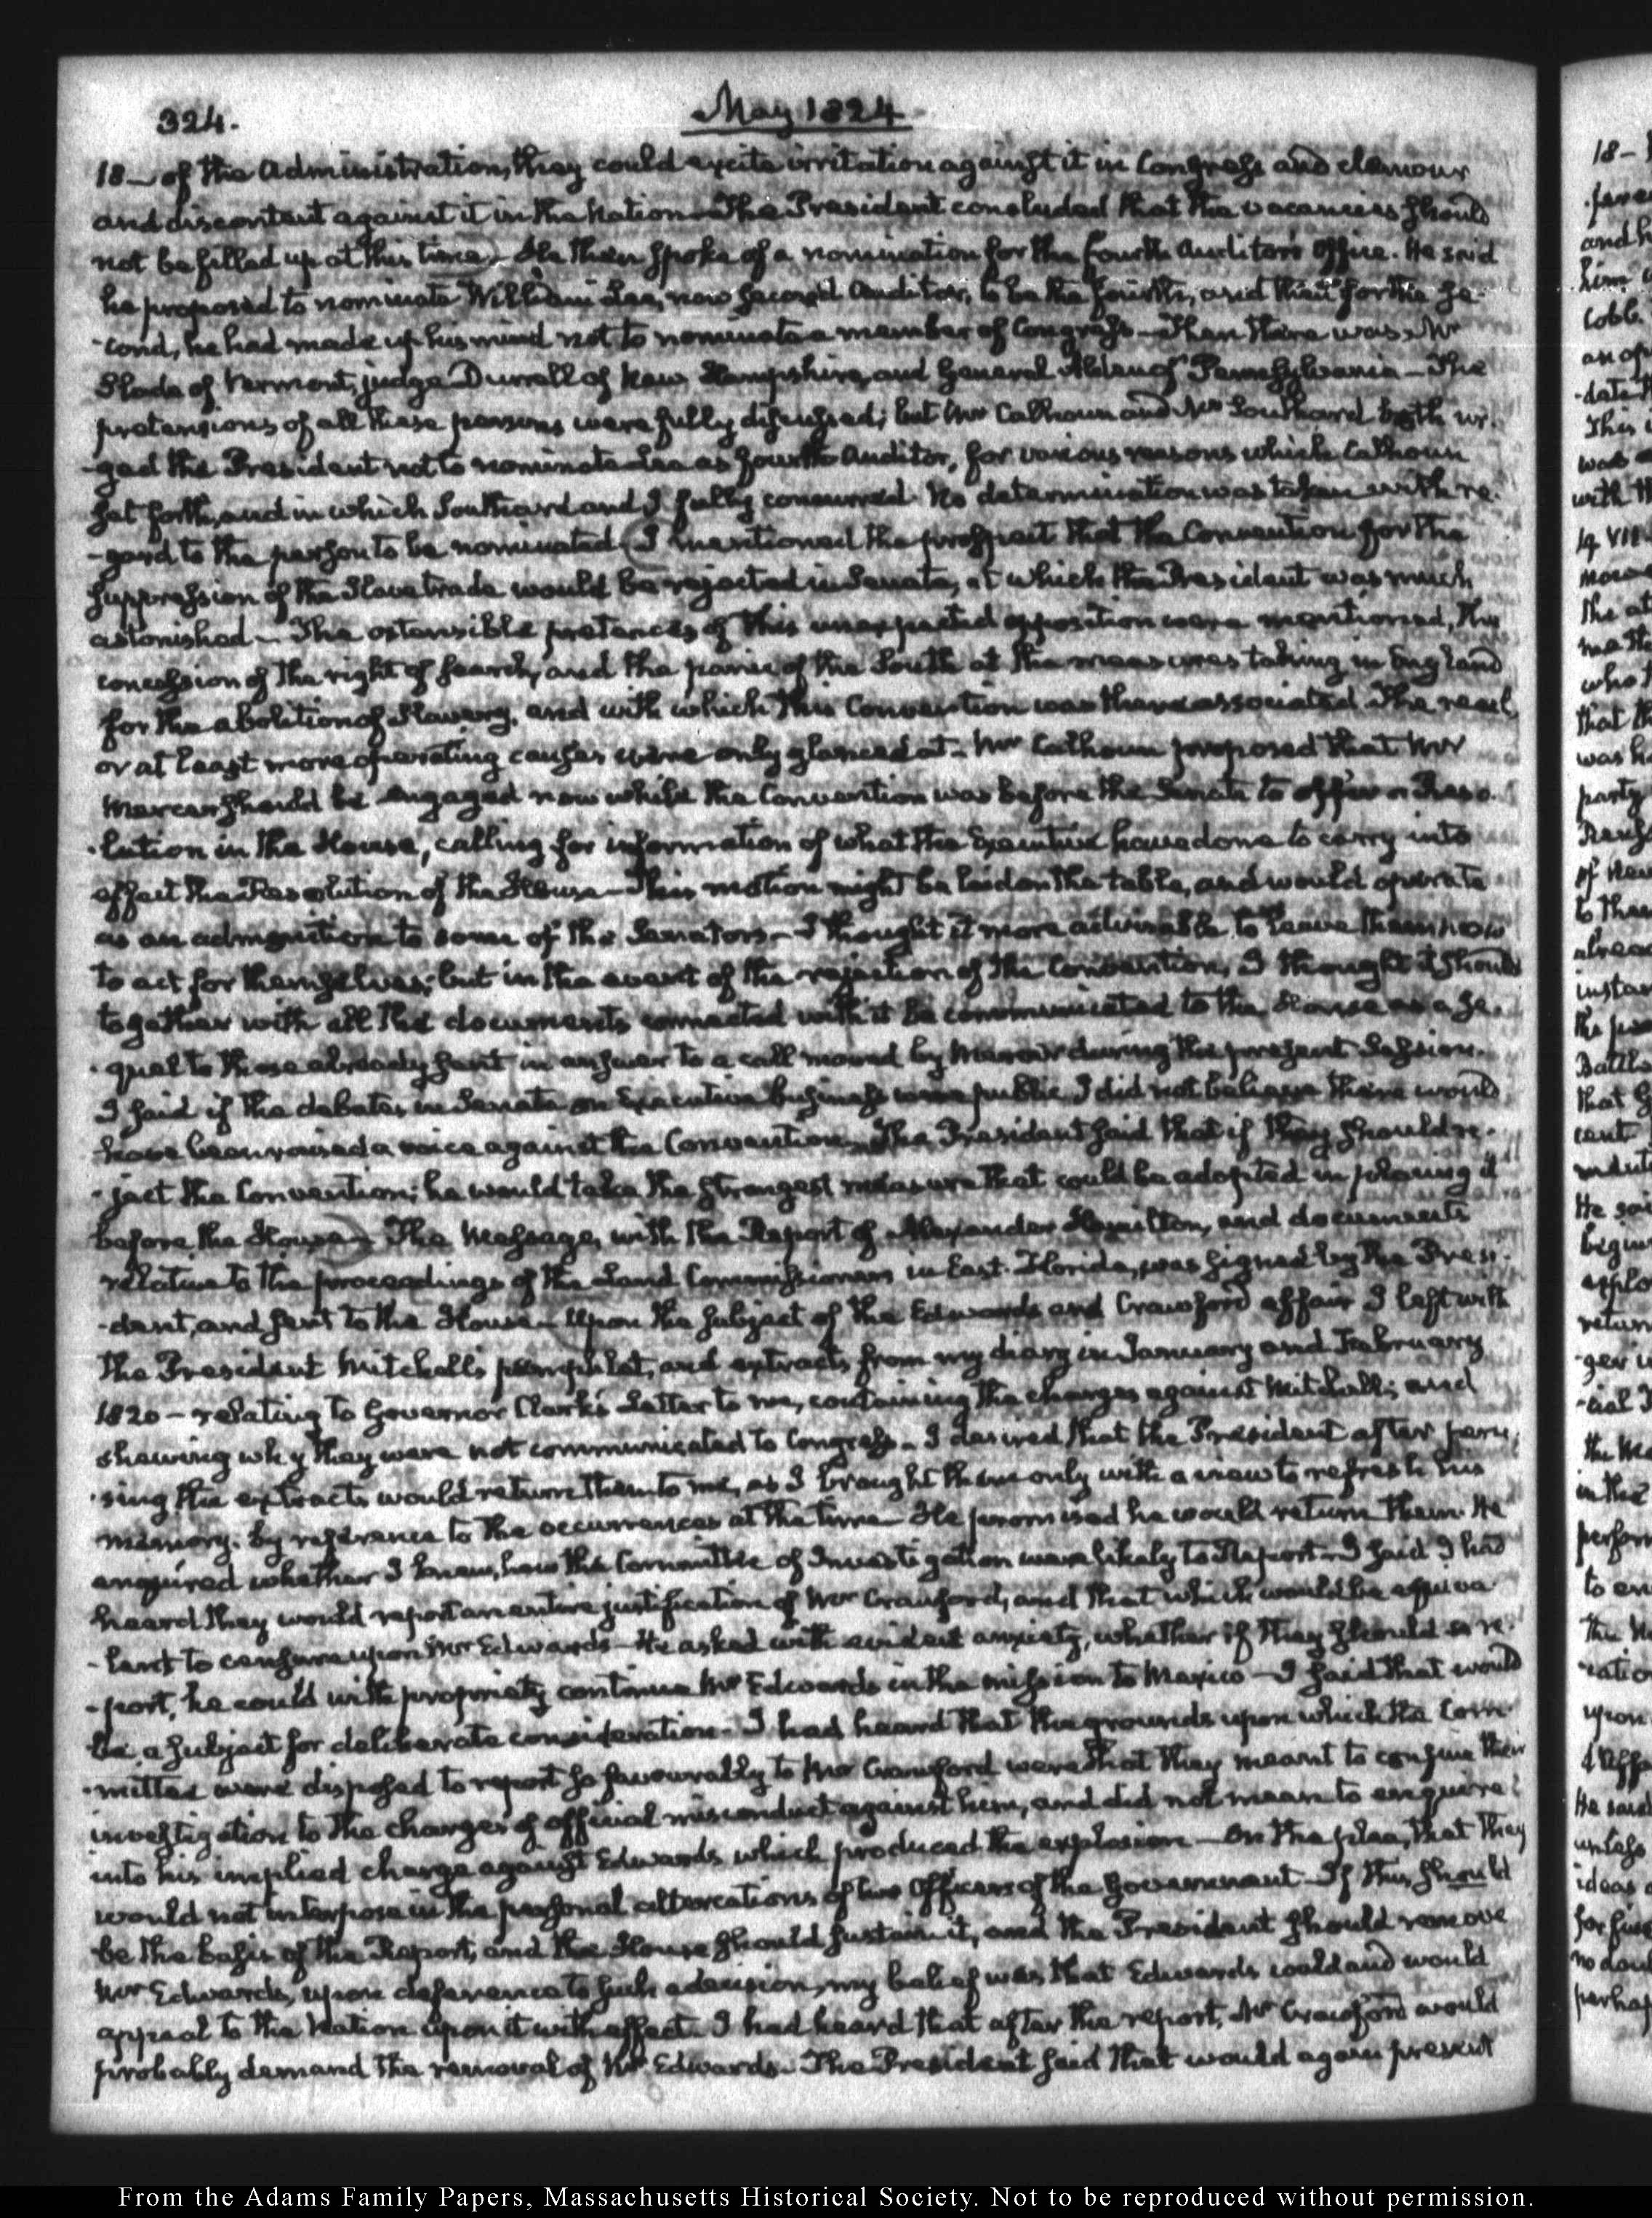 324.
May 1824
18 – of the Administration, they could excite irritation against it in Congress and clamour
and discontent against it in the Nation – The President concluded that the vacancies should
not be filled up at this time – He then spoke of a nomination for the fourth Auditor's Office. He said
he proposed to nominate William Lee, now second Auditor, to be the fourth, and then for the se-
-cond, he had made up his mind not to nominate a member of Congress – Then there was Mr
Slade of Vermont, judge Durrell of New Hampshire, and General Alden of Pennsylvania – The
pretensions of all these persons were fully discussed; but Mr Calhoun and Mr Southard both ur-
-ged the President not to nominate Lee as fourth Auditor, for various reasons which Calhoun
set forth, and in which Southard and I fully concurred. No determination was taken with re-
-gard to the person to be nominated (I mentioned the prospect that the Convention for the
suppression of the Slave trade would be rejected in Senate, at which the President was much
astonished – The ostensible pretences of this unexpected opposition were mentioned, the
concession of the right of search, and the panic of the South at the measures taking in England
for the abolition of Slavery, and with which this Convention was there associated. The real,
or at least more operating causes were only glanced at – Mr Calhoun proposed that Mr
Mercer should be engaged now while the Convention was before the Senate to offer a Reso-
-lution in the House, calling for information of what the Executive have done to carry into
effect the Resolution of the House – This motion might be laid on the table, and would operate
as an admonition to some of the Senators – I thought it more advisable to leave them now
to act for themselves; but in the event of the rejection of the Convention, I thought it should
together with all the documents connected with it be communicated to the House as a se-
-quel to those already sent in answer to a call moved by Mercer during the present Session.
I said if the debates in Senate on Executive business were public I did not believe there would
have been raised a voice against the Convention – The President said that if they should re-
-ject the Convention; he would take the strongest measure that could be adopted in placing it
before the House) – The Message, with the Report of Alexander Hamilton, and documents
relative to the proceedings of the Land Commissioners in East Florida, was signed by the Presi-
-dent, and sent to the House – Upon the subject of the Edwards and Crawford affair I left with
the President Mitchell's pamphlet, and extracts from my diary in January and February
1820 – relating to Governor Clark's Letter to me, containing the charges against Mitchell; and
shewing why they were not communicated to Congress – I desired that the President after peru-
-sing the extracts would return them to me, as I brought them only with a view to refresh his
memory, by reference to the occurrences at the time – He promised he would return them. He
enquired whether I knew, how the Committee of Investigation were likely to Report – I said I had
heard they would report an entire justification of Mr Crawford, and that which would be equiva-
-lent to censure upon Mr Edwards – He asked with evident anxiety, whether if they should so re-
-port, he could with propriety continue Mr Edwards in the mission to Mexico – I said that would
be a subject for deliberate consideration – I had heard that the grounds upon which the Com-
-mittee were disposed to report so favourably to Mr Crawford were that they meant to confine their
investigation to the charges of official misconduct against him, and did not mean to enquire
into his implied charge against Edwards which produced the explosion – On the plea, that they
would not interpose in the personal altercations of two Officers of the Government – If this should
be the basis of the Report, and the House should sustain it, and the President should remove
Mr Edwards, upon deference to such a decision, my belief was that Edwards could and would
appeal to the Nation upon it with effect – I had heard that after the report, Mr Crawford would
probably demand the removal of Mr Edwards – The President said that would again present
From the Adams Family Papers, Massachusetts Historical Society. Not to be reproduced without permission.